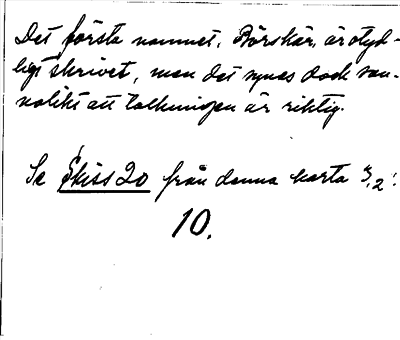 Det första namnet, Börskär, är otyd-
ligt skrivet, men det synes dock san-
nolikt att tolkningen är riktig.
Se Skiss 20 från denna karta
10.